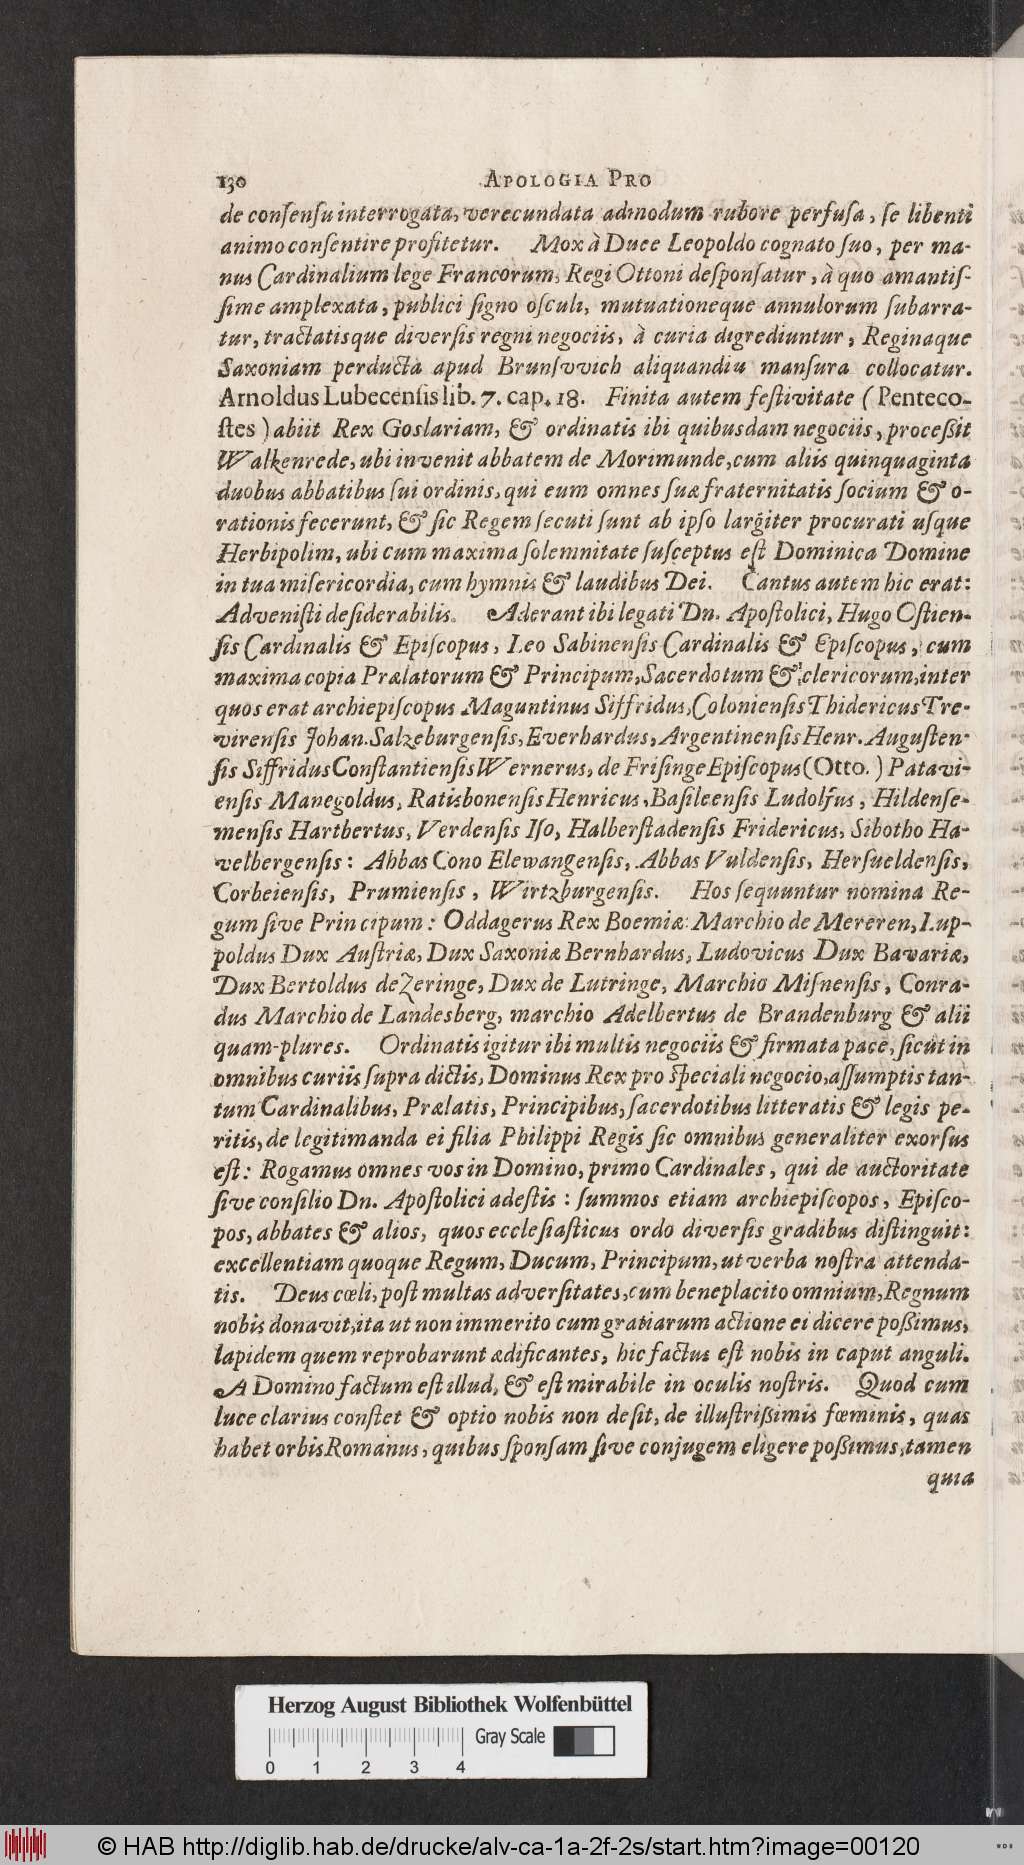 130 APOLOGIA PRO
de conſenſu interrogata, verecundata admodum rubore perfuſa, ſe libenti
animo conſentire profitetur. Mox à Duce Leopoldo cognato ſuo, per ma-
nus Cardinalium lege Francorum, Regi Ottoni deſponſatur, à quo amantiſ-
ſime amplexata, publici ſigno oſculi, mutuationeque annulorum ſubarra-
tur, tractatisque diverſis regni negociis, à curia digrediuntur, Reginaque
Saxoniam perducta apud Brunſvvich aliquandiu manſura collocatur.
Arnoldus Lubecenſis lib. 7. cap. 18. Finita autem feſtivitate ( Penteco-
ſtes ) abiit Rex Goslariam, & ordinatis ibi quibusdam negociis, proceßit
Walkenrede, ubi invenit abbatem de Morimunde, cum aliis quinquaginta
duobus abbatibus ſui ordinis, qui eum omnes ſuæ fraternitatis ſocium & o-
rationis fecerunt, & ſic Regem ſecuti ſunt ab ipſo largiter procurati uſque
Herbipolim, ubi cum maxima ſolemnitate ſuſceptus eſt Dominica Domine
in tua miſericordia, cum hymnis & laudibus Dei. Cantus autem hic erat:
Adveniſti deſiderabilis. Aderant ibi legati Dn. Apoſtolici, Hugo Oſtien-
ſis Cardinalis & Epiſcopus, Leo Sabinenſis Cardinalis & Epiſcopus, cum
maxima copia Prælatorum & Principum, Sacerdotum & clericorum, inter
quos erat archiepiſcopus Maguntinus Siffridus, Colonienſis Thidericus Tre-
virenſis Johan. Salzeburgenſis, Everhardus, Argentinenſis Henr. Auguſten-
ſis Siffridus Conſtantienſis Wernerus, de Friſinge Epiſcopus (Otto.) Patavi-
enſis Manegoldus, Ratisbonenſis Henricus, Baſileenſis Ludolfus, Hildenſe-
menſis Hartbertus, Verdenſis Iſo, Halberſtadenſis Fridericus, Sibotho Ha-
velbergenſis: Abbas Cono Elewangenſis, Abbas Vuldenſis, Herſueldenſis,
Corbeienſis, Prumienſis, Wirtzburgenſis. Hos ſequuntur nomina Re-
gum ſive Principum: Oddagerus Rex Boemiæ Marchio de Mereren, Lup-
poldus Dux Auſtriæ, Dux Saxoniæ Bernhardus, Ludovicus Dux Bavariæ,
Dux Bertoldus de Zeringe, Dux de Lutringe, Marchio Miſnenſis, Conra-
dus Marchio de Landesberg, marchio Adelbertus de Brandenburg & alii
quam-plures. Ordinatis igitur ibi multis negociis & firmata pace, ſicut in
omnibus curiis ſupra dictis, Dominus Rex pro ſpeciali negocio, aſſumptis tan-
tum Cardinalibus, Prælatis, Principibus, ſacerdotibus litteratis & legis pe-
ritis, de legitimanda ei filia Philippi Regis ſic omnibus generaliter exorſus
eſt: Rogamus omnes vos in Domino, primo Cardinales, qui de auctoritate
ſive conſilio Dn. Apoſtolici adeſtis: ſummos etiam archiepiſcopos, Epiſco-
pos, abbates & alios, quos eccleſiaſticus ordo diverſis gradibus diſtinguit:
excellentiam quoque Regum, Ducum, Principum, ut verba noſtra attenda-
tis. Deus cœli, poſt multas adverſitates, cum beneplacito omnium, Regnum
nobis donavit, ita ut non immerito cum gratiarum actione ei dicere poßimus,
lapidem quem reprobarunt ædificantes, hic factus eſt nobis in caput anguli.
A Domino factum eſt illud, & eſt mirabile in oculis noſtris. Quod cum
luce clarius conſtet & optio nobis non deſit, de illuſtrißimis fœminis, quas
habet orbis Romanus, quibus ſponſam ſive conjugem eligere poßimus, tamen
quia
Herzog August Bibliothek Wolfenbüttel
Gray Scale
0 1 2 3 4
© HAB http://diglib.hab.de/drucke/alv-ca-1a-2f-2s/start.htm?image=00120